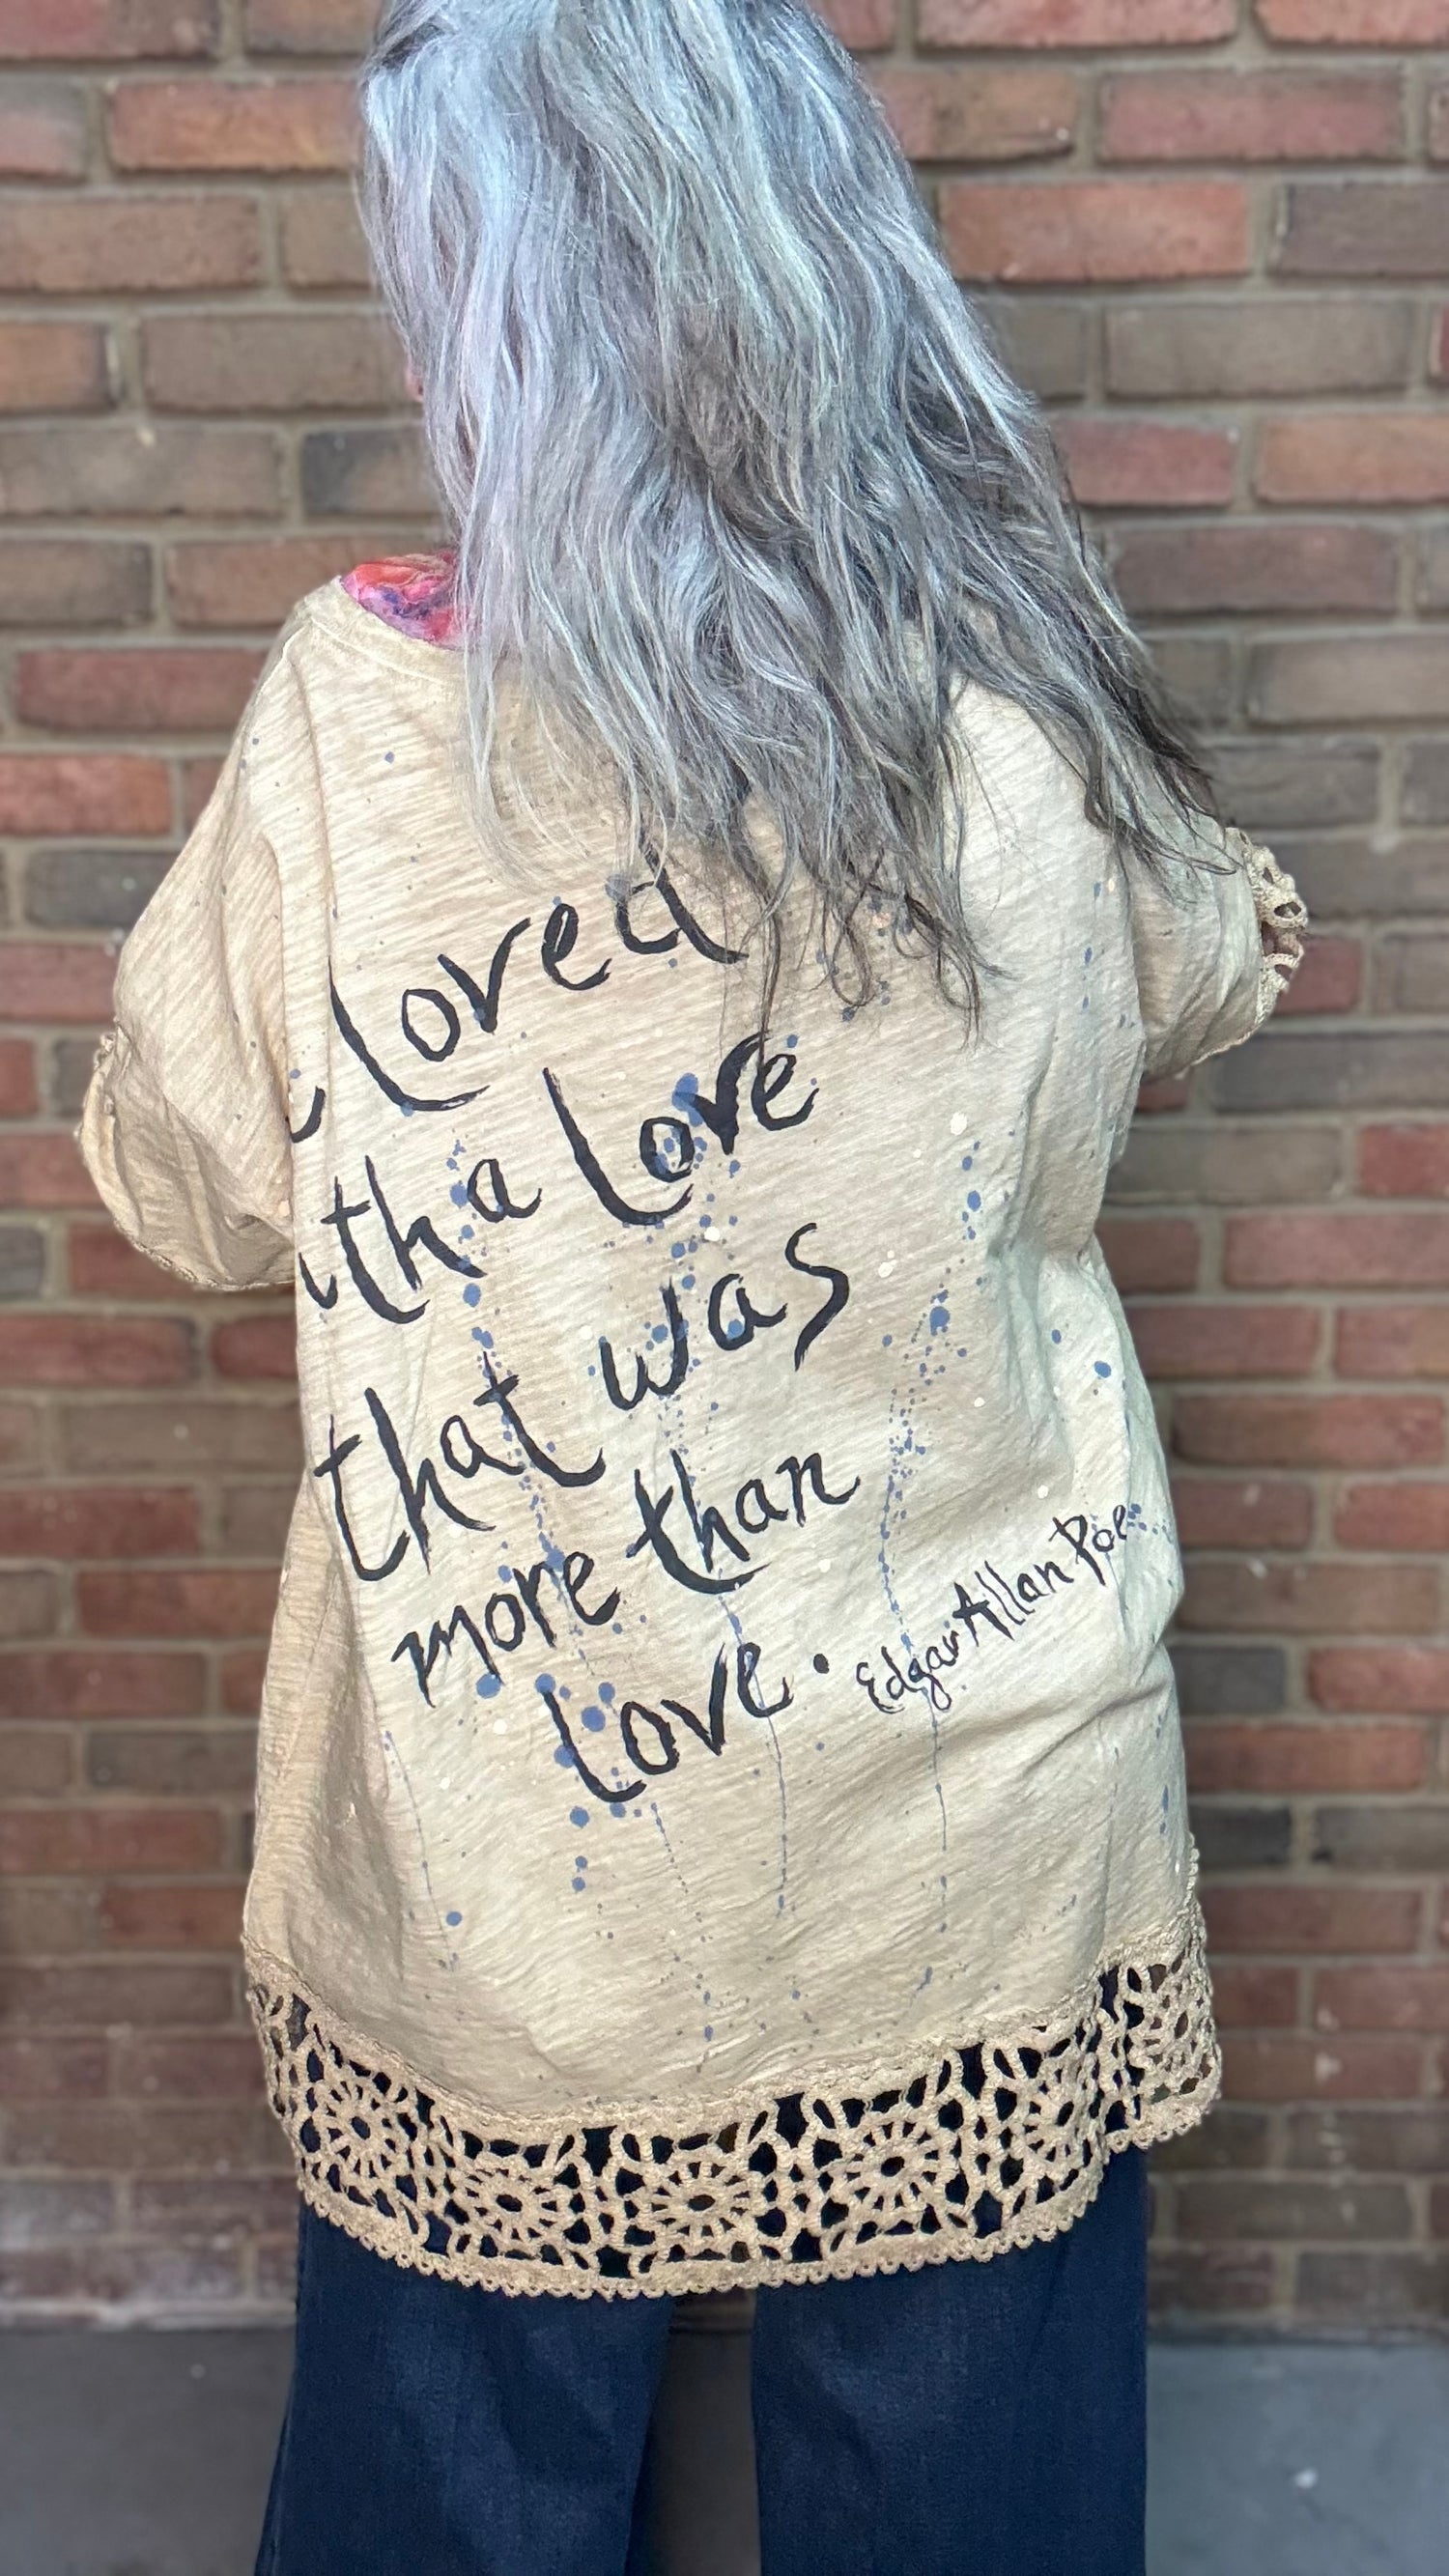 Loved
a Love
that was
more than
Love.
Edgar Allan Poe